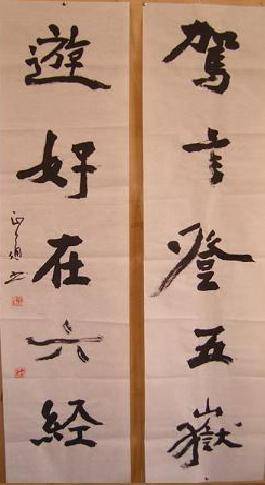 駕言登五嶽
遊好在六経